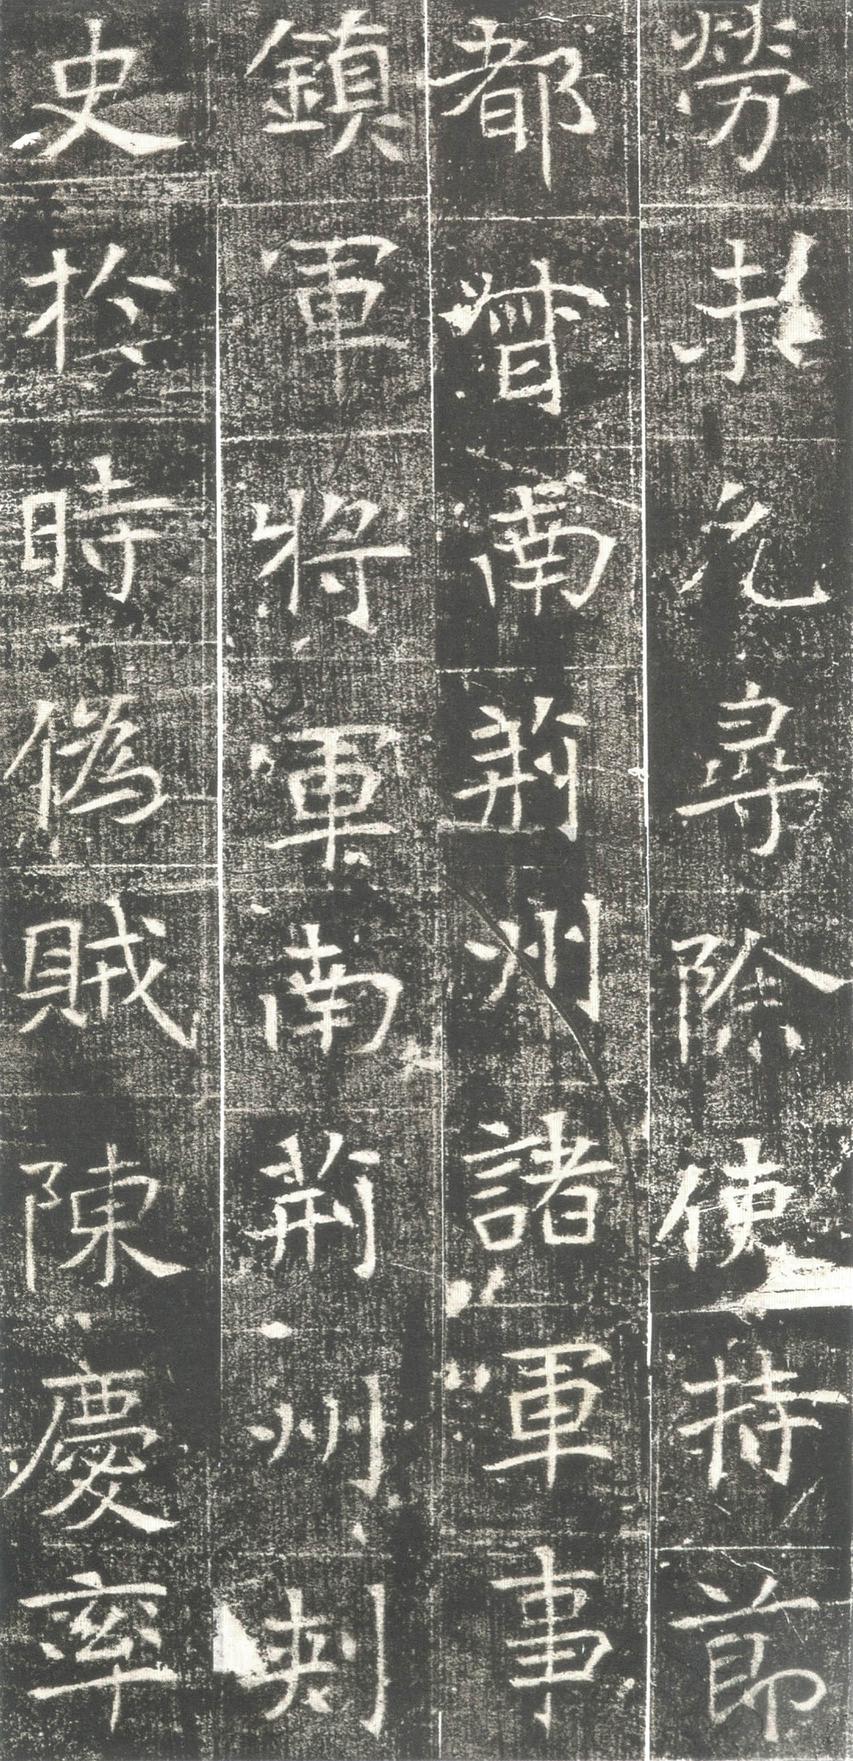 勞允尋除使持節
都督南荊州諸軍事
鎮軍將軍南荊州刺
史於時偽賊陳慶率